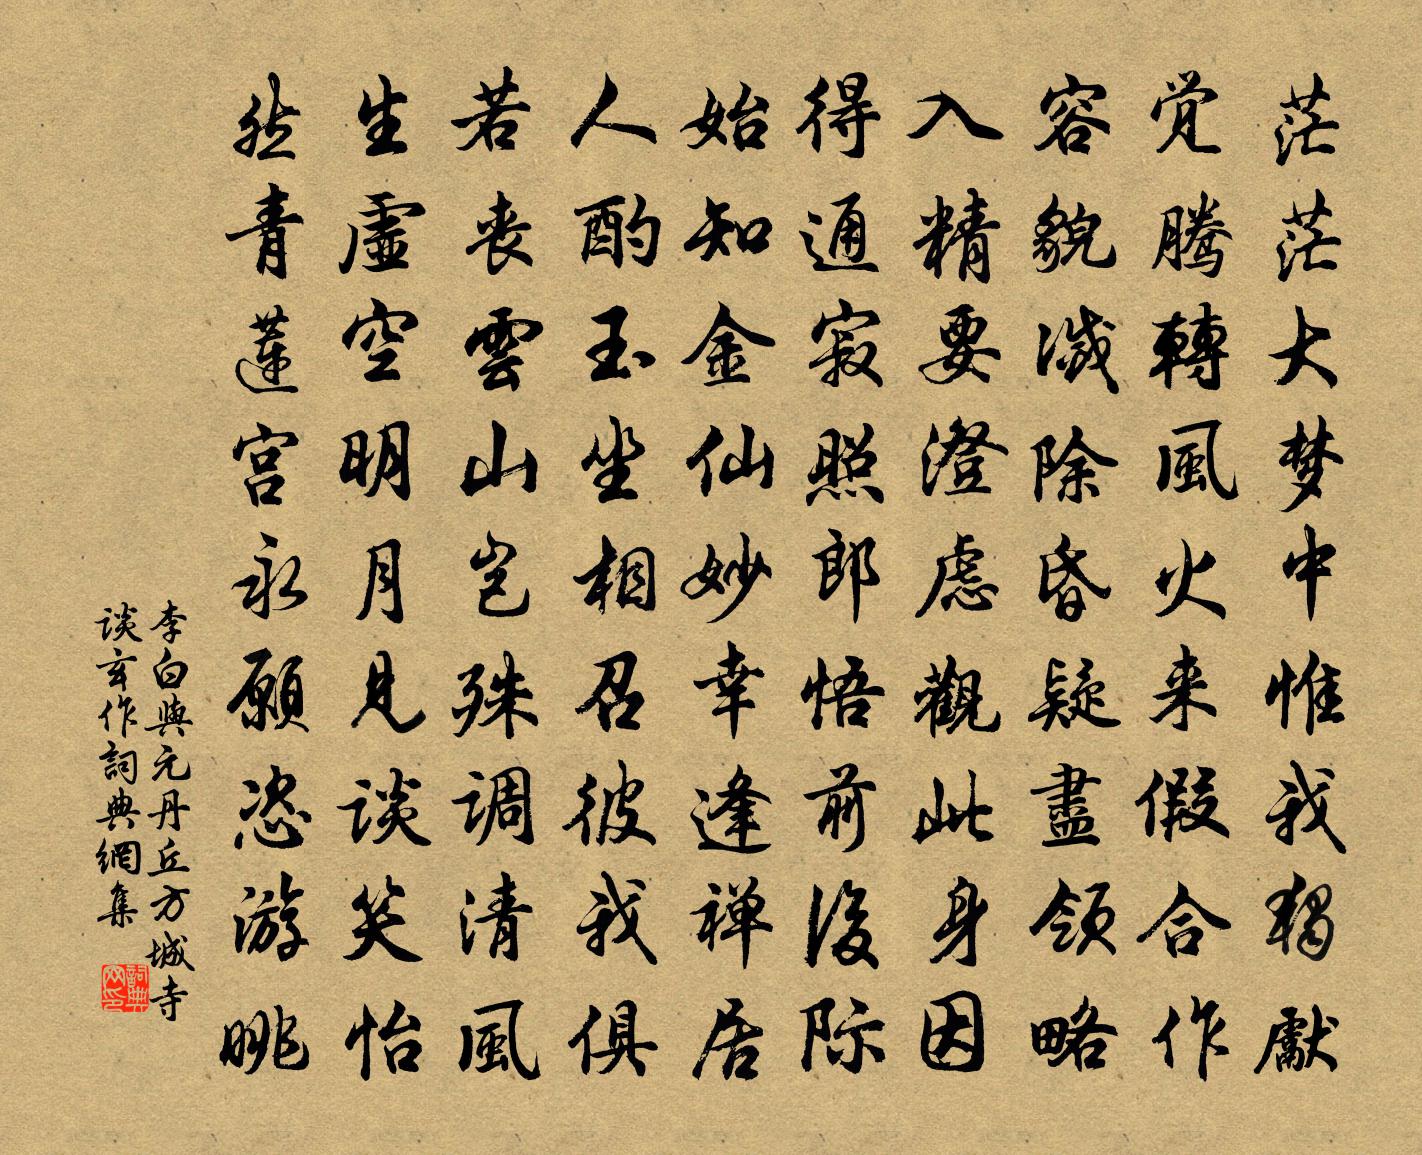 茫茫大梦中惟我独献
觉腾轉風火来假合作
容貌滅除昏疑盡領略
入精要澄慮觀此身因
得通寂照郎悟前後际
始知金仙妙幸逢禅居
人酌玉坐相召彼我俱
若丧雲山岂殊调清風
生虚空明月見談笑怡
然青蓮宫永願恣游眺
李白與元丹丘方城寺
谈玄作詞典網集
詞典网印